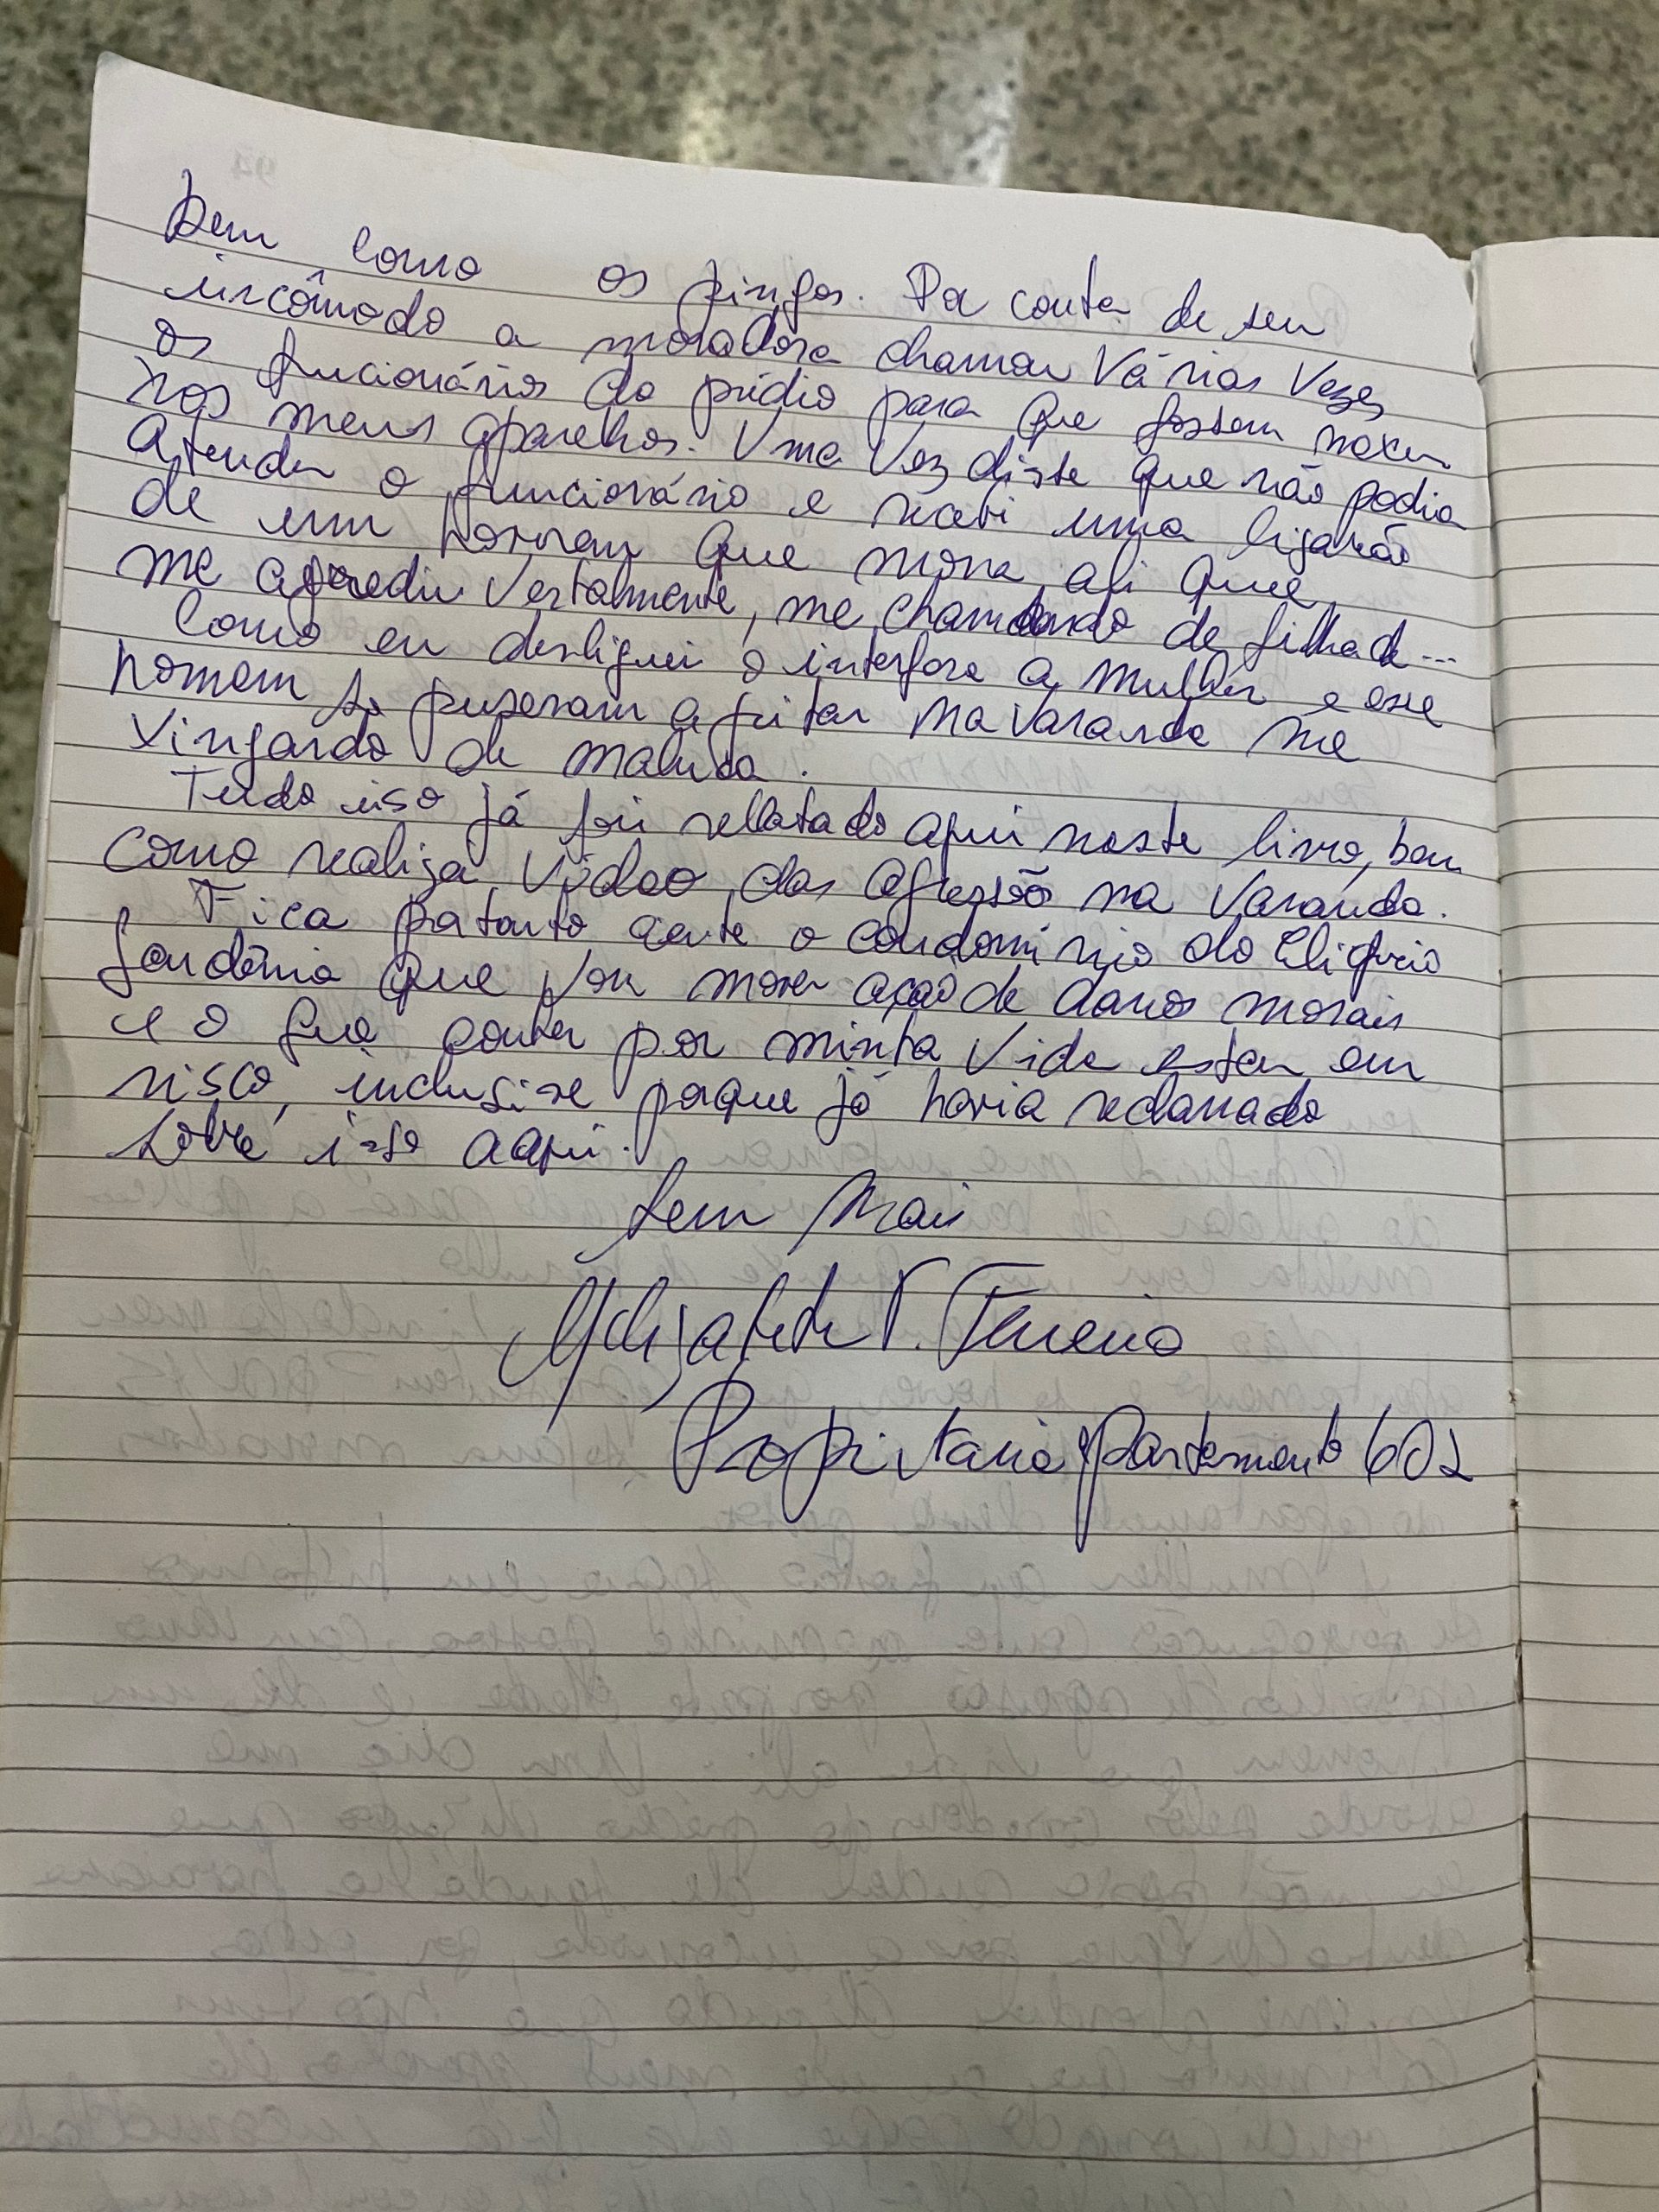 Bem como os pingos. Por conta de seu
incômodo a moradora chamou Várias Vezes
os funcionários do prédio para que fossem mexer
nos meus aparelhos. Uma Vez disse que não podia
Atender o funcionário e recebi uma ligação
de um homem que mora ali que
me agrediu Verbalmente, me chamando de filha d...
Como eu desliguei o interfone a mulher e esse
homem se puseram a gritar na Varanda me
Xingando de maluca.
Tudo isso já foi rellatado aqui neste livro, bem
como realizei Vídeo das agressões na Varanda.
Fica portanto ciente o condomínio do Edifício
que Vou mover ação de danos morais
e o que couber por minha Vida estar em
risco, inclusive porque já havia reclamado
sobre isso aqui.
Sem Mais
Proprietária Apartamento 602